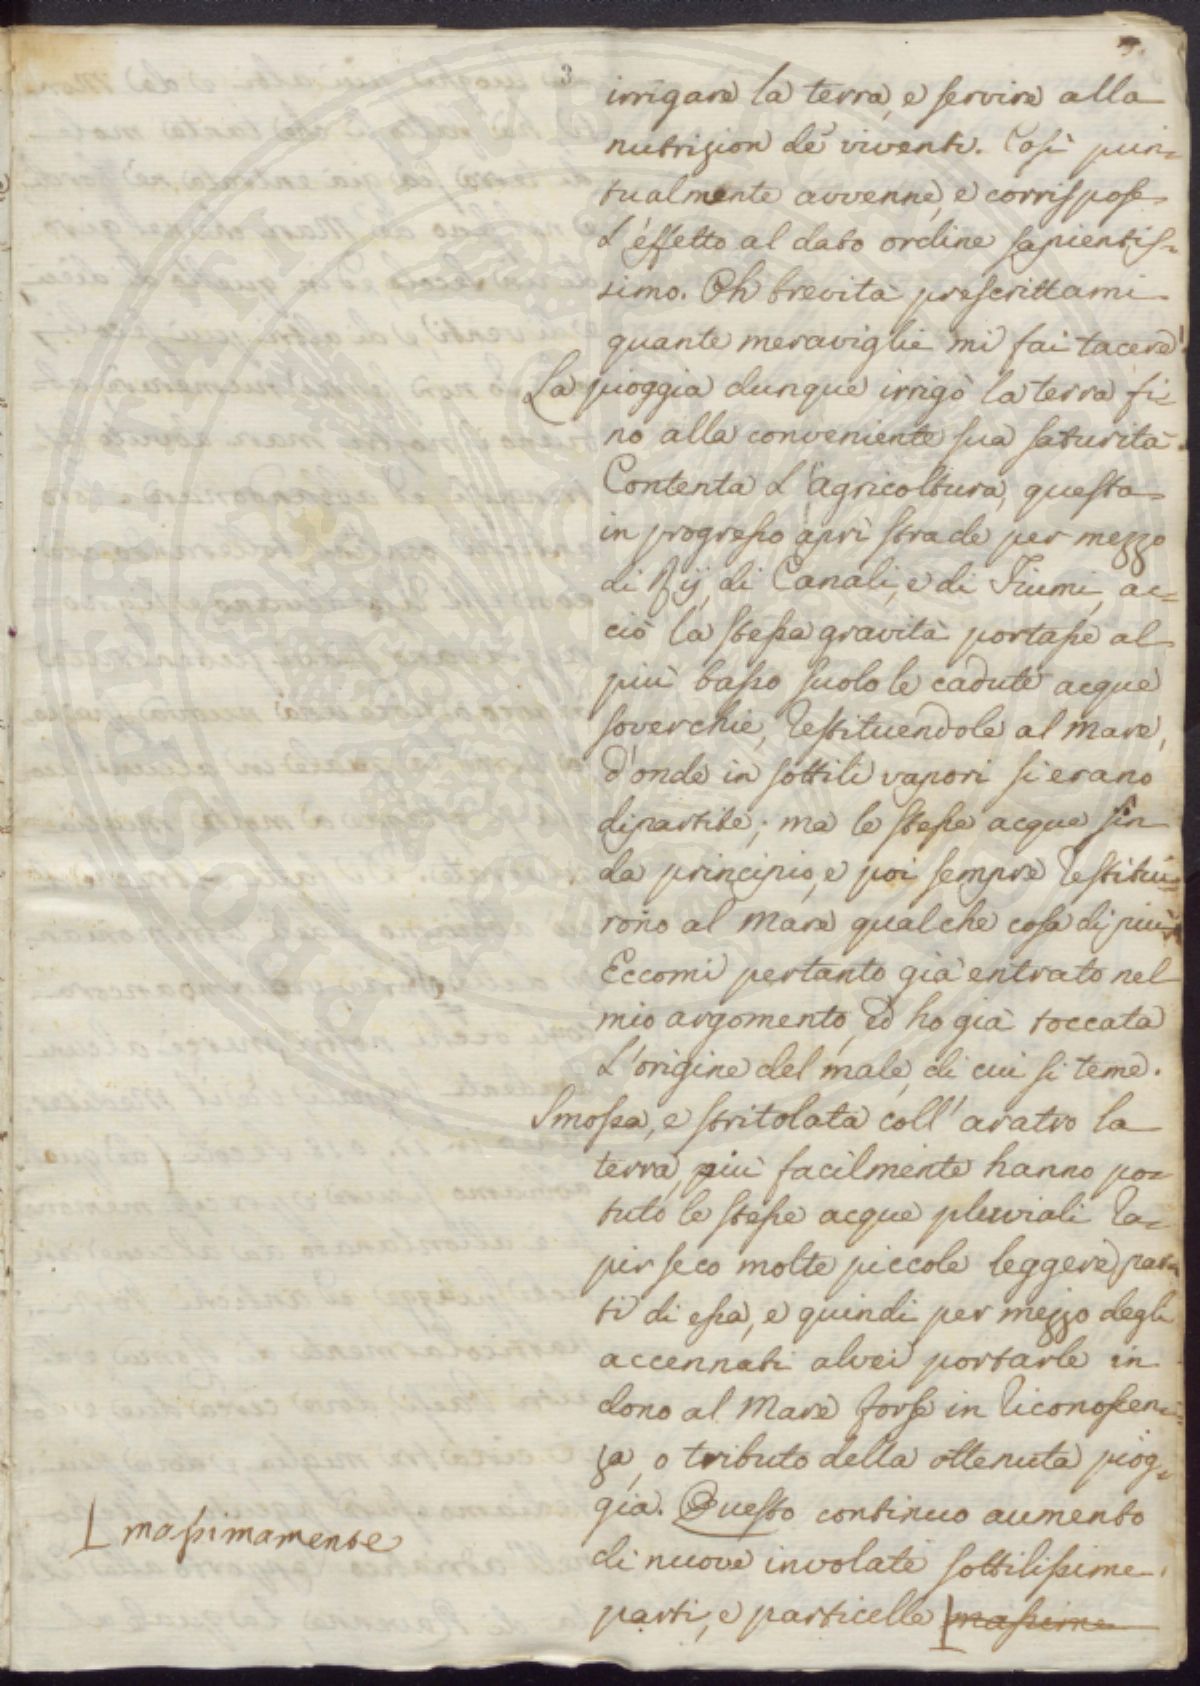 3
irrigare la terra, e servire alla
nutrizion de' viventi. Così pun-
tualmente avvenne, e corrispose
l'effetto al dato ordine sapientis-
simo. Oh brevità prescrittami
quante meraviglie mi fai tacere!
La pioggia dunque irrigò la terra fi-
no alla conveniente sua saturità.
Contenta l'agricoltura, questa
in progresso aprì strade per mezzo
di Rij, di Canali, e di Fiumi, ac-
ciò la stessa gravità portasse al
più basso suolo le cadute acque
soverchie, restituendole al Mare,
d'onde in sottili vapori si erano
dipartite; ma le stesse acque sin
da principio, e poi sempre restitui-
rono al Mare qualche cosa di più.
Eccomi pertanto già entrato nel
mio argomento, ed ho già toccata
l'origine del male, di cui si teme.
Smossa, e stritolata coll'aratro la
terra, più facilmente hanno po-
tuto le stesse acque pluviali ra-
pir seco molte piccole leggere par-
ti di essa, e quindi per mezzo degli
accennati alvei portarle in
dono al Mare forse in riconoscen-
za, o tributo della ottenuta piog-
gia. Questo continuo aumento
di nuove involate sottilissime
parti, e particelle massime
massimamente